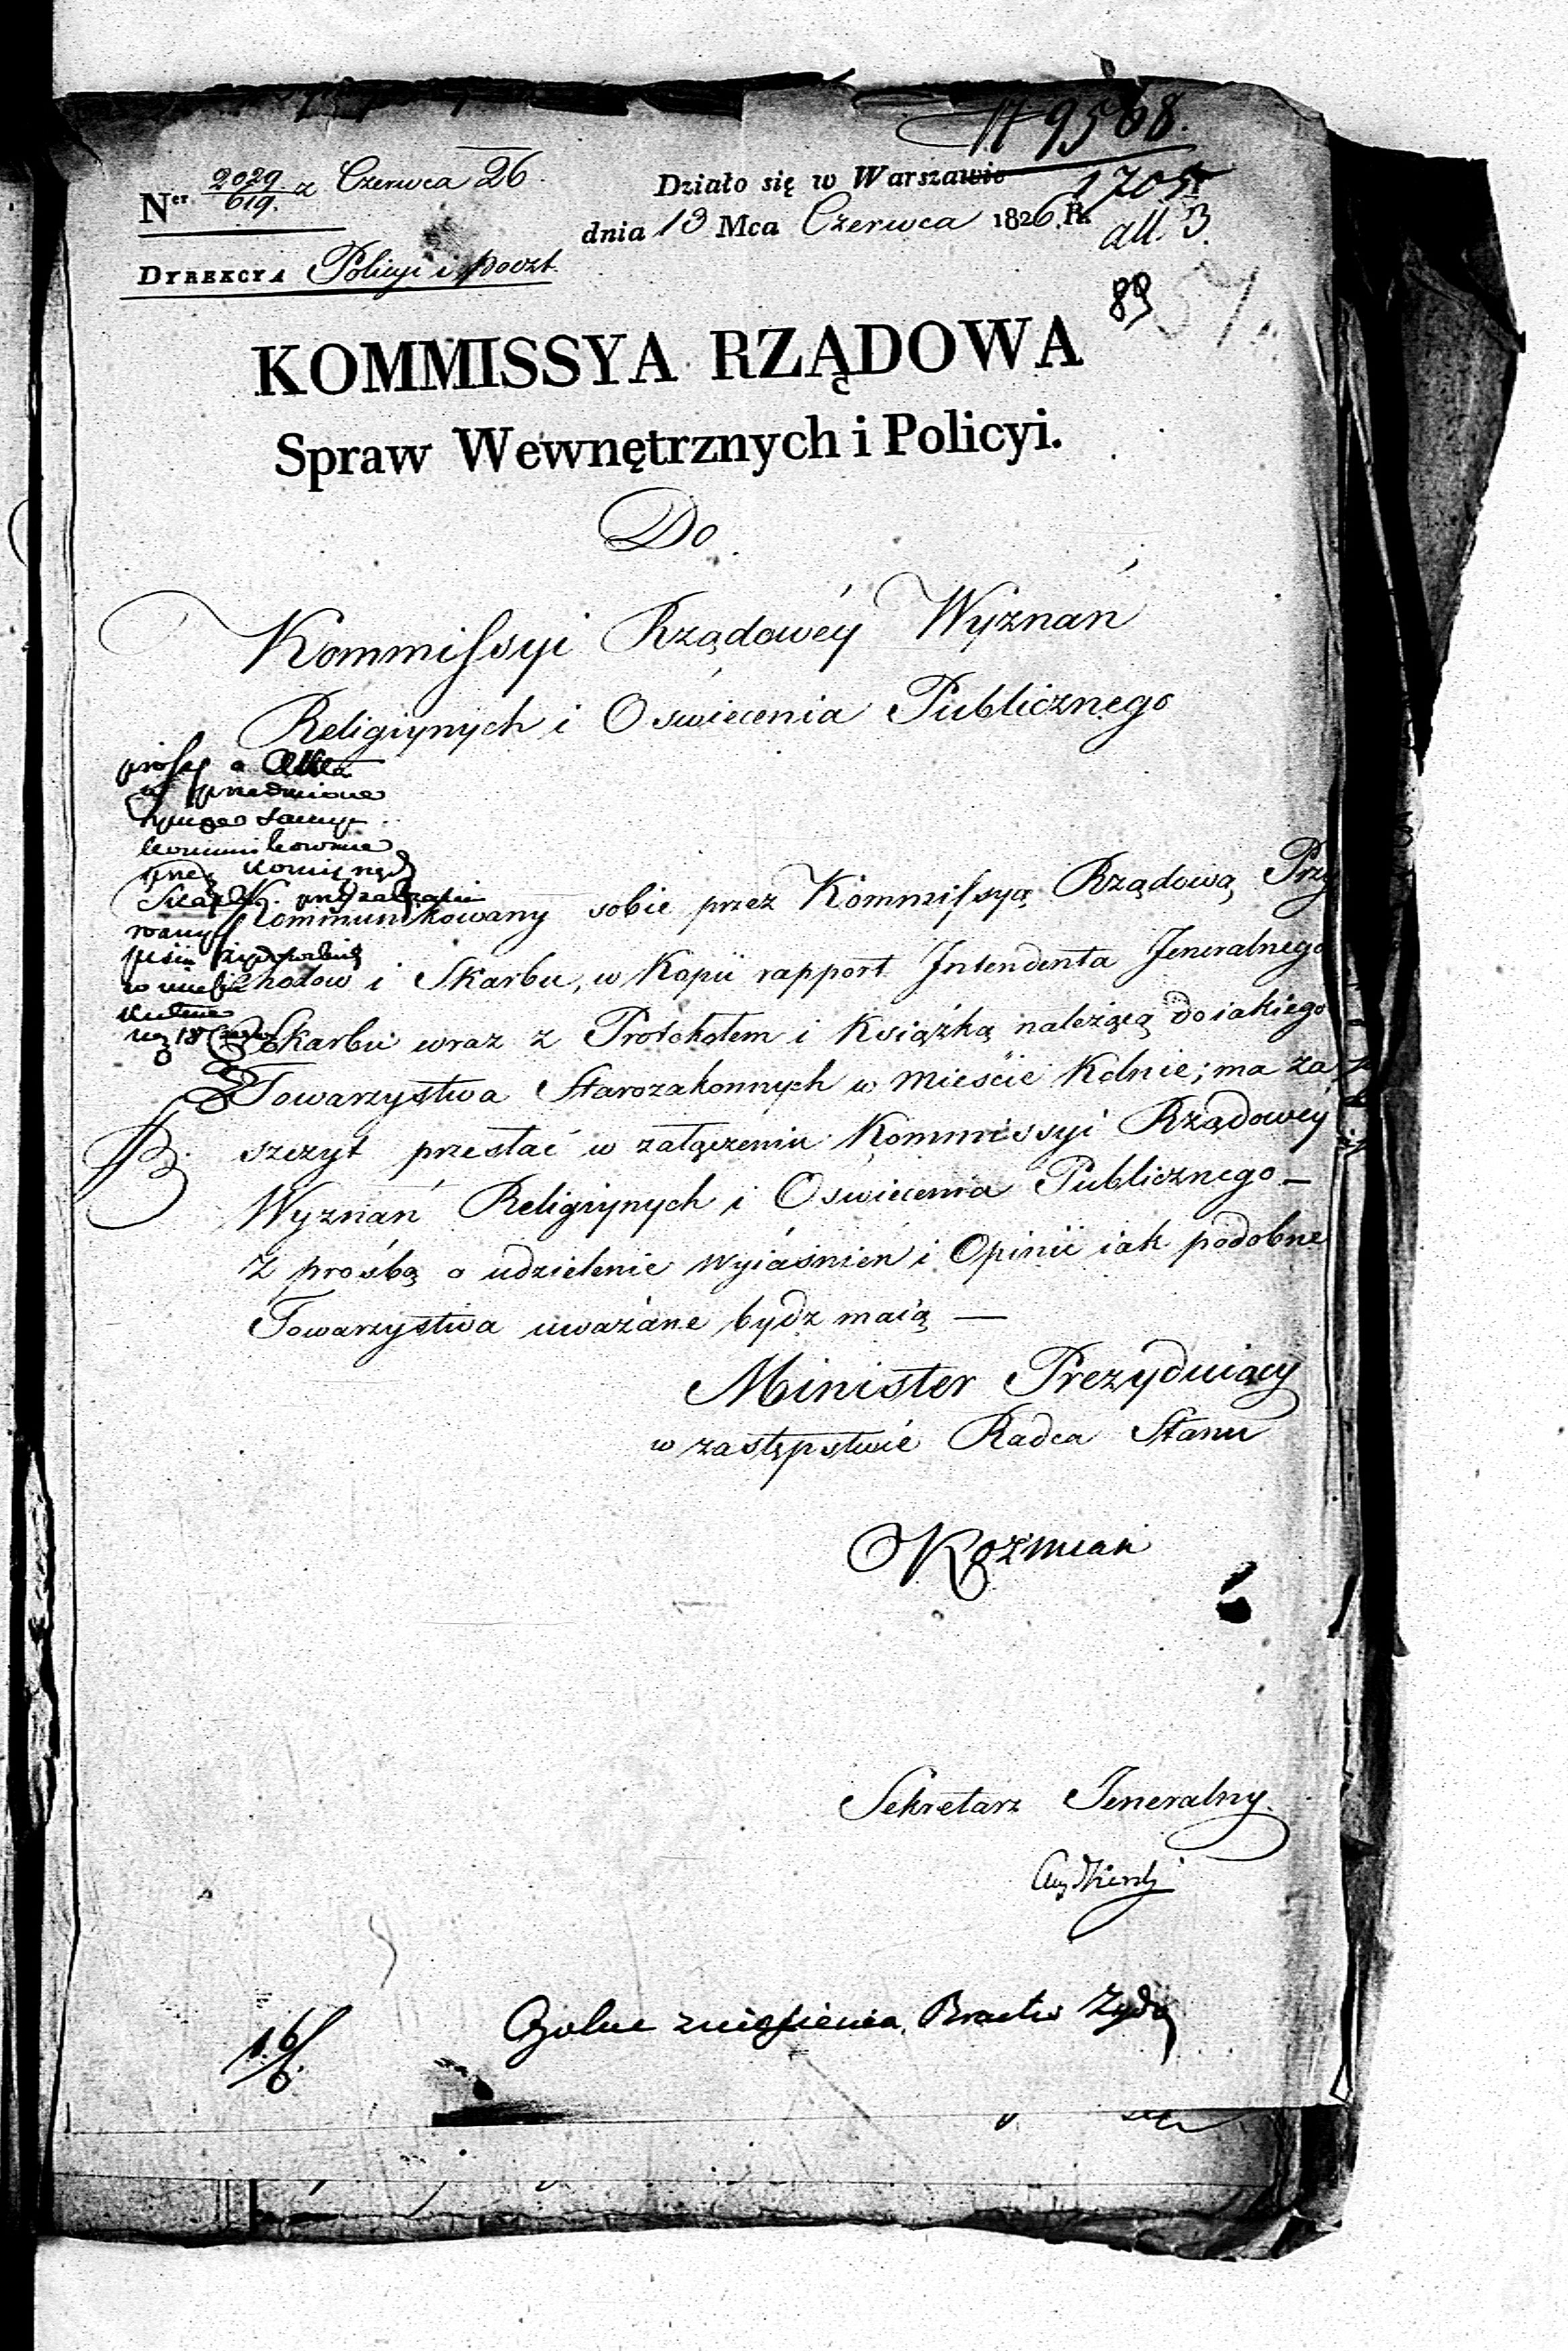 N 9568.
1705
all. 3.
89
Ner 2029/619. z Czerwca 26.
Działo się w Warszawie
dnia 13 Mca Czerwca 1826. R.
DYREKCYA Policyi i poczt.
KOMMISSYA RZĄDOWA
Spraw Wewnętrznych i Policyi.
Do
Kommissyi Rządowéy Wyznań
Religiynych i Oświecenia Publicznego
Kommunikowany sobie przez Kommissyą Rządową Przy
chodow i Skarbu, w Kopii rapport Intendenta Jeneralnego
Skarbu wraz z Protokołem i Książką należącą do iakiego
Towarzystwa Starozakonnych w mieście Kolnie; ma za
szczyt przesłać w załączeniu Kommissyi Rządowéy
Wyznań Religiynych i Oświecenia Publicznego —
z prośbą o udzielenie wyiaśnień i Opinii iak podobne
Towarzystwa uważane bydź maią —
Minister Prezyduiący
w zastępstwie Radca Stanu
Koźmian
Sekretarz Jeneralny
zniesienia Bractw Żydo